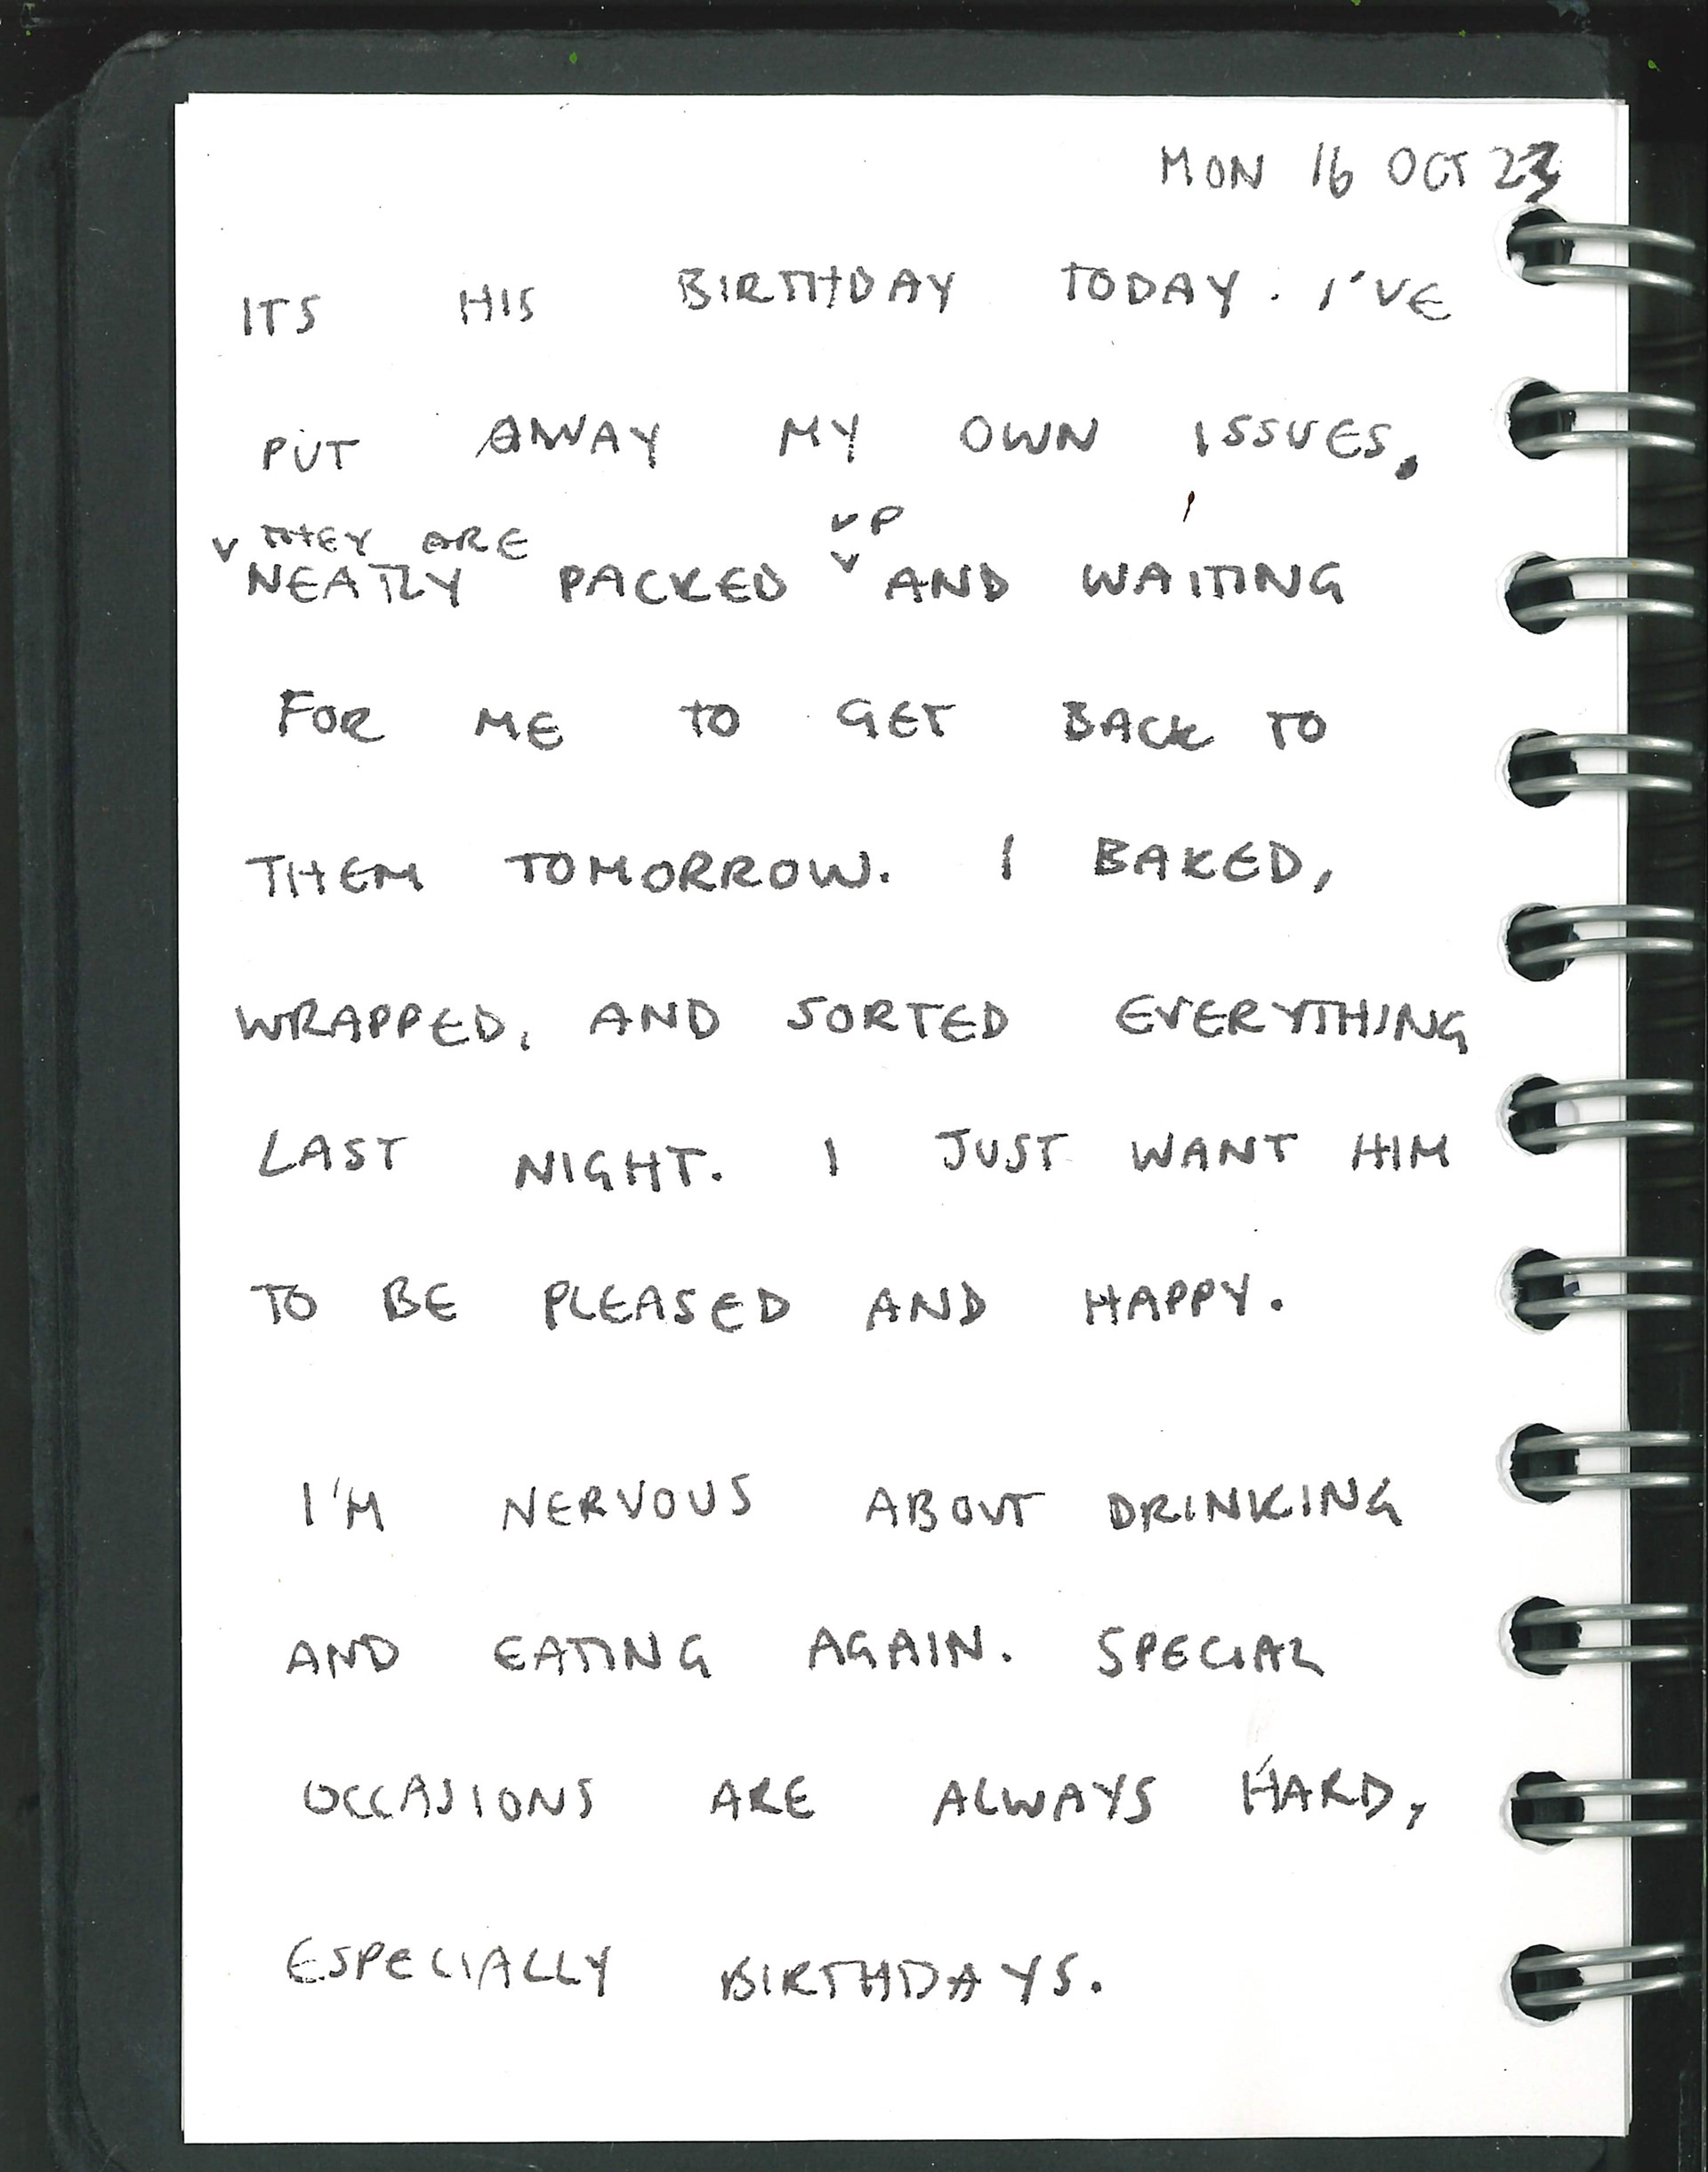 MON 16 OCT 23
ITS HIS BIRTHDAY TODAY. I'VE
PUT AWAY MY OWN ISSUES.
THEY ARE UP
NEATLY PACKED AND WAITING
FOR ME TO GET BACK TO
THEM TOMORROW. I BAKED,
WRAPPED, AND SORTED EVERYTHING
LAST NIGHT. I JUST WANT HIM
TO BE PLEASED AND HAPPY.
I'M NERVOUS ABOUT DRINKING
AND EATING AGAIN. SPECIAL
OCCASIONS ARE ALWAYS HARD,
ESPECIALLY BIRTHDAYS.